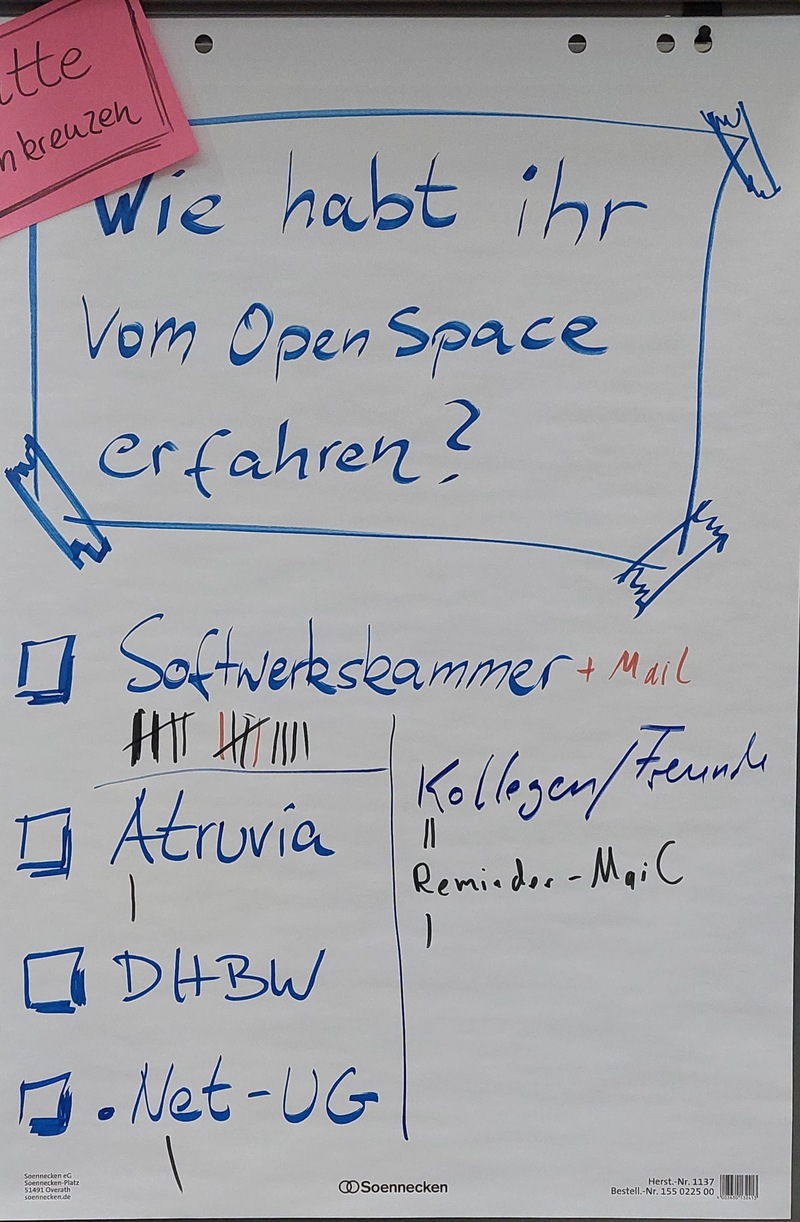 tte
nkreuzen
Wie habt ihr
vom Open Space
erfahren?
Softwerkskammer + Mail
Kollegen/Freunde
Atruvia
Reminder-Mail
DHBW
.Net-UG
Soennecken eG
Soennecken-Platz
51491 Overath
soennecken.de
Soennecken
Herst.-Nr. 1137
Bestell.-Nr. 155 0225 00